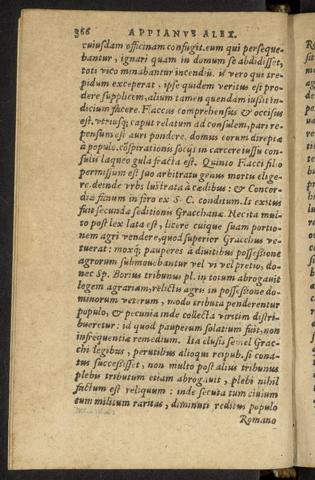 366 APPIANVS ALEX.
cuiusdam officinam confugit. eum qui perseque-
bantur, ignari quam in domum se abdidisset,
toti vico minabantur incendiũ. is vero qui tre-
pidum exceperat, ipse quidem veritus est pro-
dere supplicem, alium tamen quendam iusit in-
dicium facere. Flaccus comprehensus & occisus
est. vtriusq; caput relatum ad consulem, pari re-
pensum est auri pondere. domus eorum direptæ
à populo. cõspirationis socij in carcere iussu con-
sulis laqueo gula fracta est. Quinto Flacci filio
permissum est suo arbitratu genus mortis elige-
re. deinde vrbs lustrata à cædibus: & Concor-
diæ fanum in foro ex S. C. conditum. Is exitus
fuit secundæ seditionis Gracchanæ. Nec ita mul-
to post lex lata est, licere cuique suam portio-
nem agri vendere, quod superior Gracchus ve-
tuerat: moxq; pauperes à diuitibus possessione
agrorum submouebantur vel vi vel pretio, do-
nec Sp. Borius tribunus pl. in totum abrogauit
legem agrariam, relictis agris in possessione do-
minorum veterum, modo tributa penderentur
populo, & pecunia inde collecta viritim distri-
bueretur: id quod pauperum solatium fuit, non
infrequentiæ remedium. Ita elusis semel Grac-
chi legibus, perutilius alioqui reipub. si cona-
tus successisset, non multo post alius tribunus
plebis tributum etiam abrogauit, & plebi nihil
factum est reliquum: inde secuta tum ciuium
tum militum raritas, diminuti reditus populo
Romano